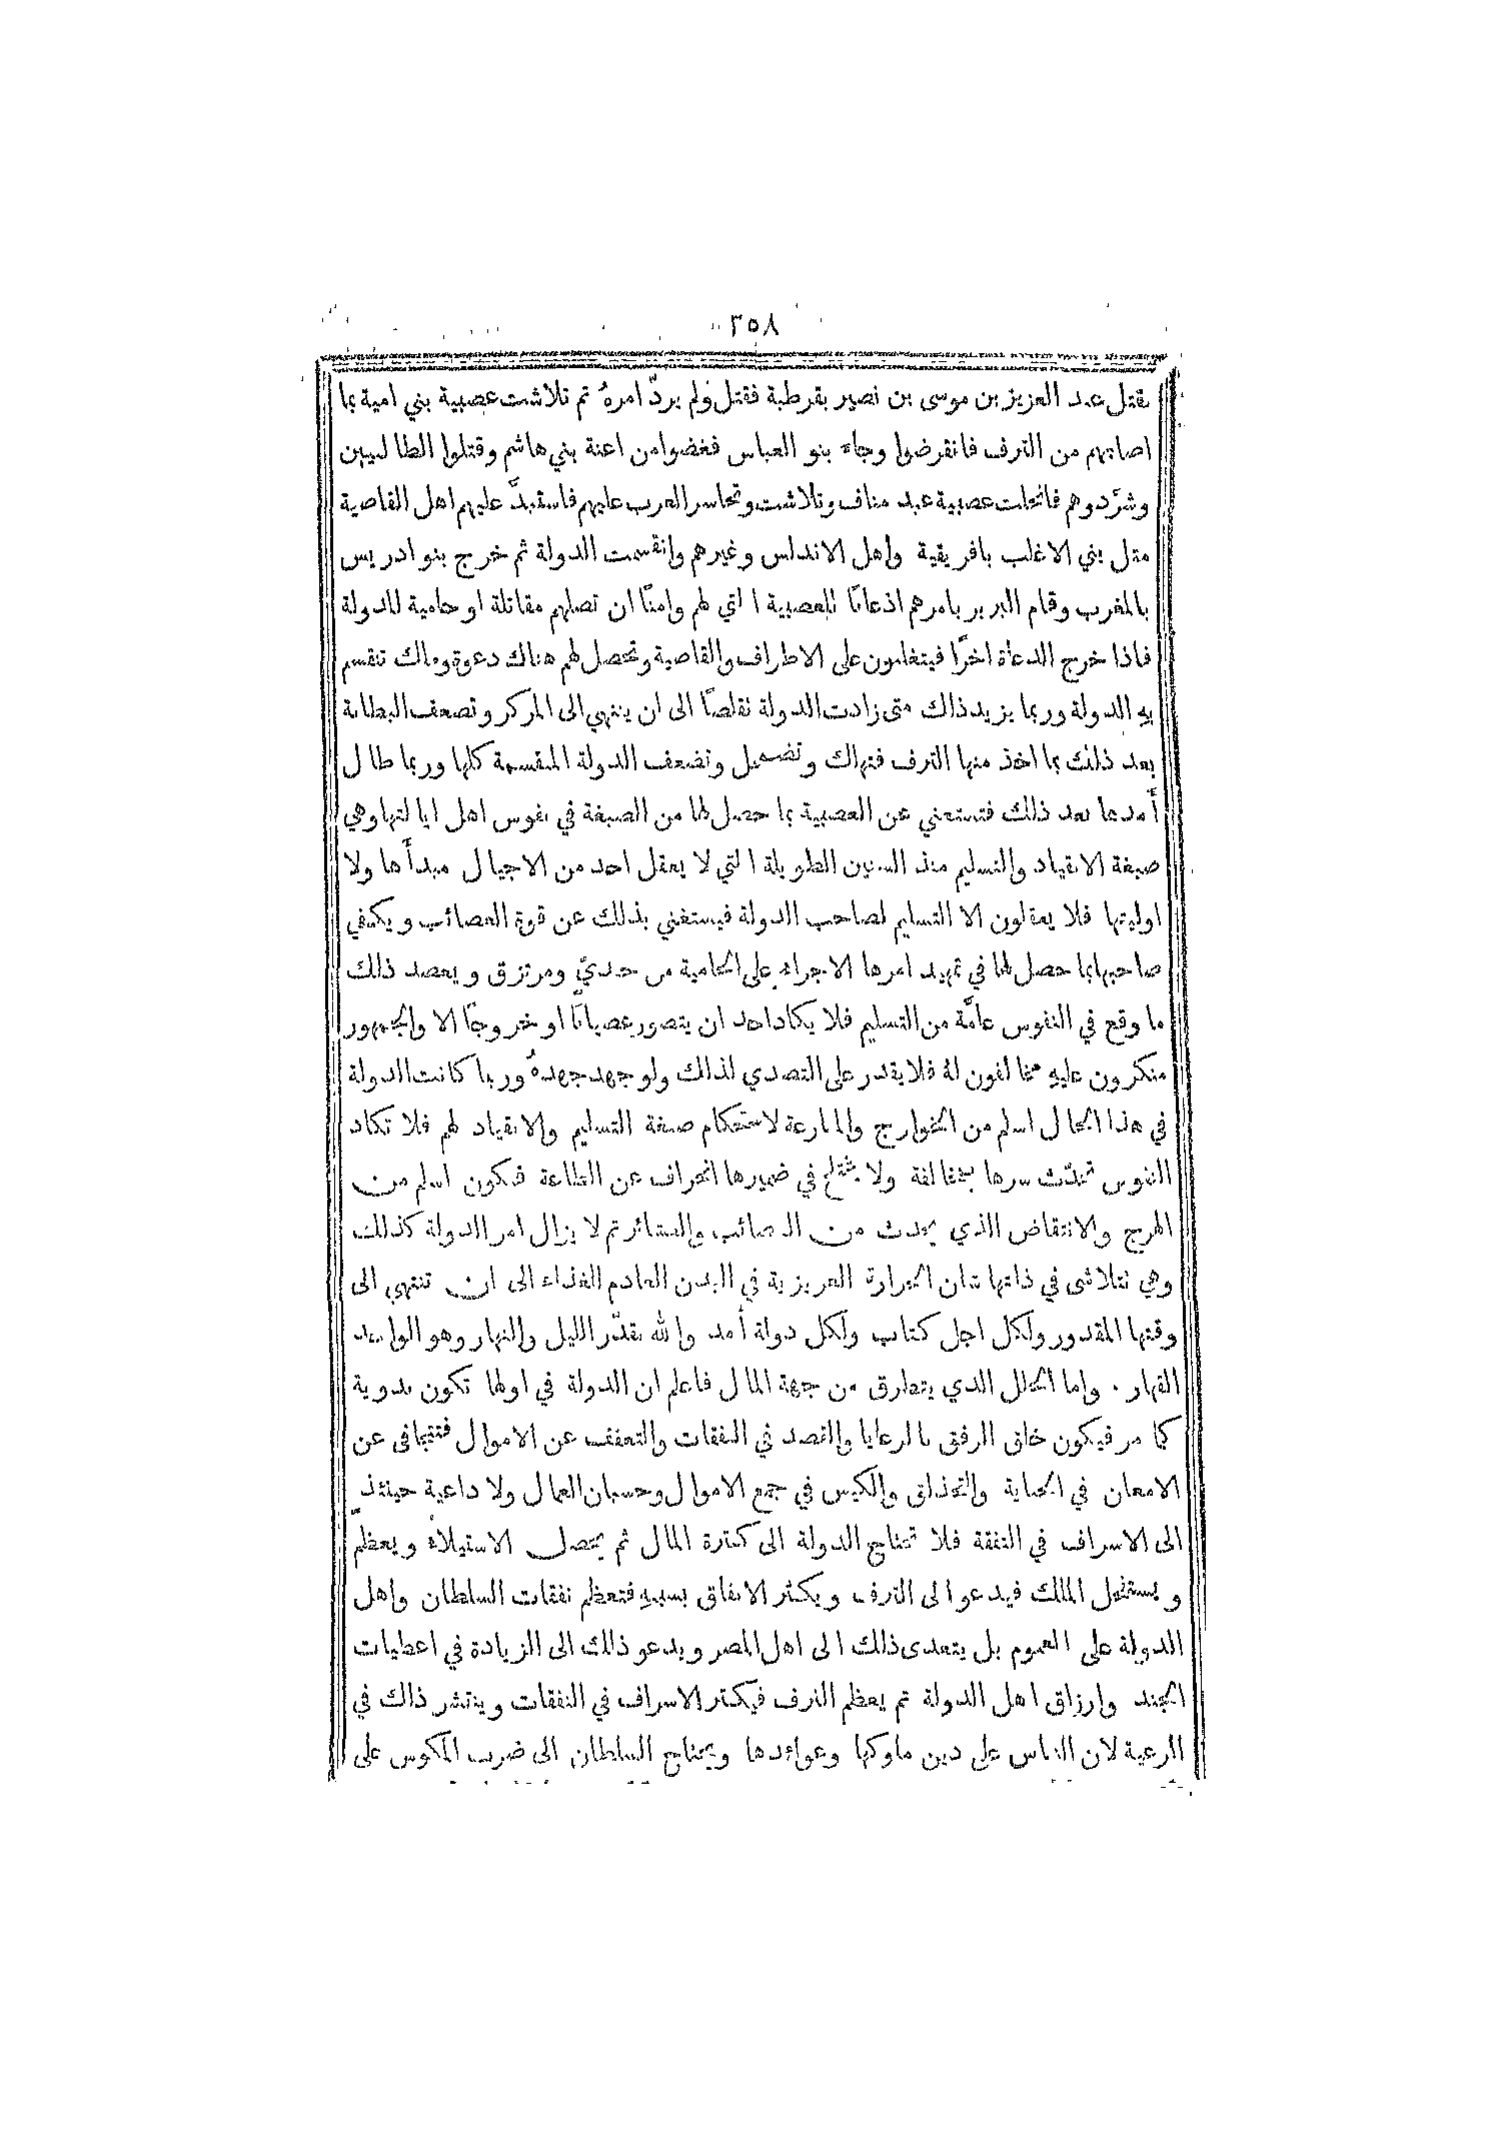 ٢٥٨
بقتل عبد العزيز بن موسى بن نصير بقرطبة فقتل ولم يردّ امرهُ ثم تلاشت عصبية بني امية بما
اصابهم من الترف فانقرضوا وجاء بنو العباس فغضوا من اعنة بني هاشم وقتلوا الطالبيين
وشرَّدوهم فانحلت عصبية عبد مناف وتلاشت وتجاسر العرب عليهم فاستبدَّ عليهم اهل القاصية
مثل بني الاغلب بافريقية واهل الاندلس وغيرهم وانقسمت الدولة ثم خرج بنو ادريس
بالمغرب وقام البربر بامرهم اذعانًا للعصبية التي لهم وامنًا ان تصلهم مقاتلة او حامية للدولة
فاذا خرج الدعاة اخرًا فيتغلبون على الاطراف والقاصية وتحصل لهم هناك دعوة وملك تنقسم
بهِ الدولة وربما يزيد ذلك متى زادت الدولة تقلصًا الى ان ينتهي الى المركز وتضعف البطانة
بعد ذلك بما اخذ منها الترف فتهلك وتضمحل وتضعف الدولة المنقسمة كلها وربما طال
أمدها بعد ذلك فتستغني عن العصبية بما حصل لها من الصبغة في نفوس اهل ايالتها وهي
صبغة الانقياد والتسليم منذ السنين الطويلة التي لا يعقل احد من الاجيال مبدأها ولا
اوليتها فلا يعقلون الا التسليم لصاحب الدولة فيستغني بذلك عن قوة العصائب ويكفي
صاحبها بما حصل لها في تمهيد امرها الاجراء على الحامية من جنديّ ومرتزق ويعضد ذلك
ما وقع في النفوس عامَّة من التسليم فلا يكاد احد ان يتصور عصيانًا او خروجًا الا والجمهور
منكرون عليهِ مخالفون لهُ فلا يقدر على التصدي لذلك ولو جهد جهدهُ وربما كانت الدولة
في هذا الحال اسلم من الخوارج والمنازعة لاستحكام صبغة التسليم والانقياد لهم فلا تكاد
النفوس تحدّث سرها بمخالفة ولا يختلج في ضميرها انحراف عن الطاعة فيكون اسلم من
الهرج والانتقاض الذي يحدث من العصائب والعشائر ثم لا يزال امر الدولة كذلك
وهي تتلاشى في ذاتها شان الحرارة الغريزية في البدن العادم الغذاء الى ان تنتهي الى
وقتها المقدور ولكل اجل كتاب ولكل دولة أمد والله يقدّر الليل والنهار وهو الواحد
القهار . واما الخلل الذي يتطرق من جهة المال فاعلم ان الدولة في اولها تكون بدوية
كما مر فيكون خلق الرفق بالرعايا والقصد في النفقات والتعفف عن الاموال فتتجافى عن
الامعان في الجباية والتحذلق والكيس في جمع الاموال وحسبان العمال ولا داعية حينئذٍ
الى الاسراف في النفقة فلا تحتاج الدولة الى كثرة المال ثم يحصل الاستيلاء ويعظم
ويستفحل الملك فيدعو الى الترف ويكثر الانفاق بسببهِ فتعظم نفقات السلطان واهل
الدولة على العموم بل يتعدى ذلك الى اهل المصر ويدعو ذلك الى الزيادة في اعطيات
الجند وارزاق اهل الدولة ثم يعظم الترف فيكثر الاسراف في النفقات وينتشر ذلك في
الرعية لان الناس على دين ملوكها وعوائدها ويحتاج السلطان الى ضرب المكوس على